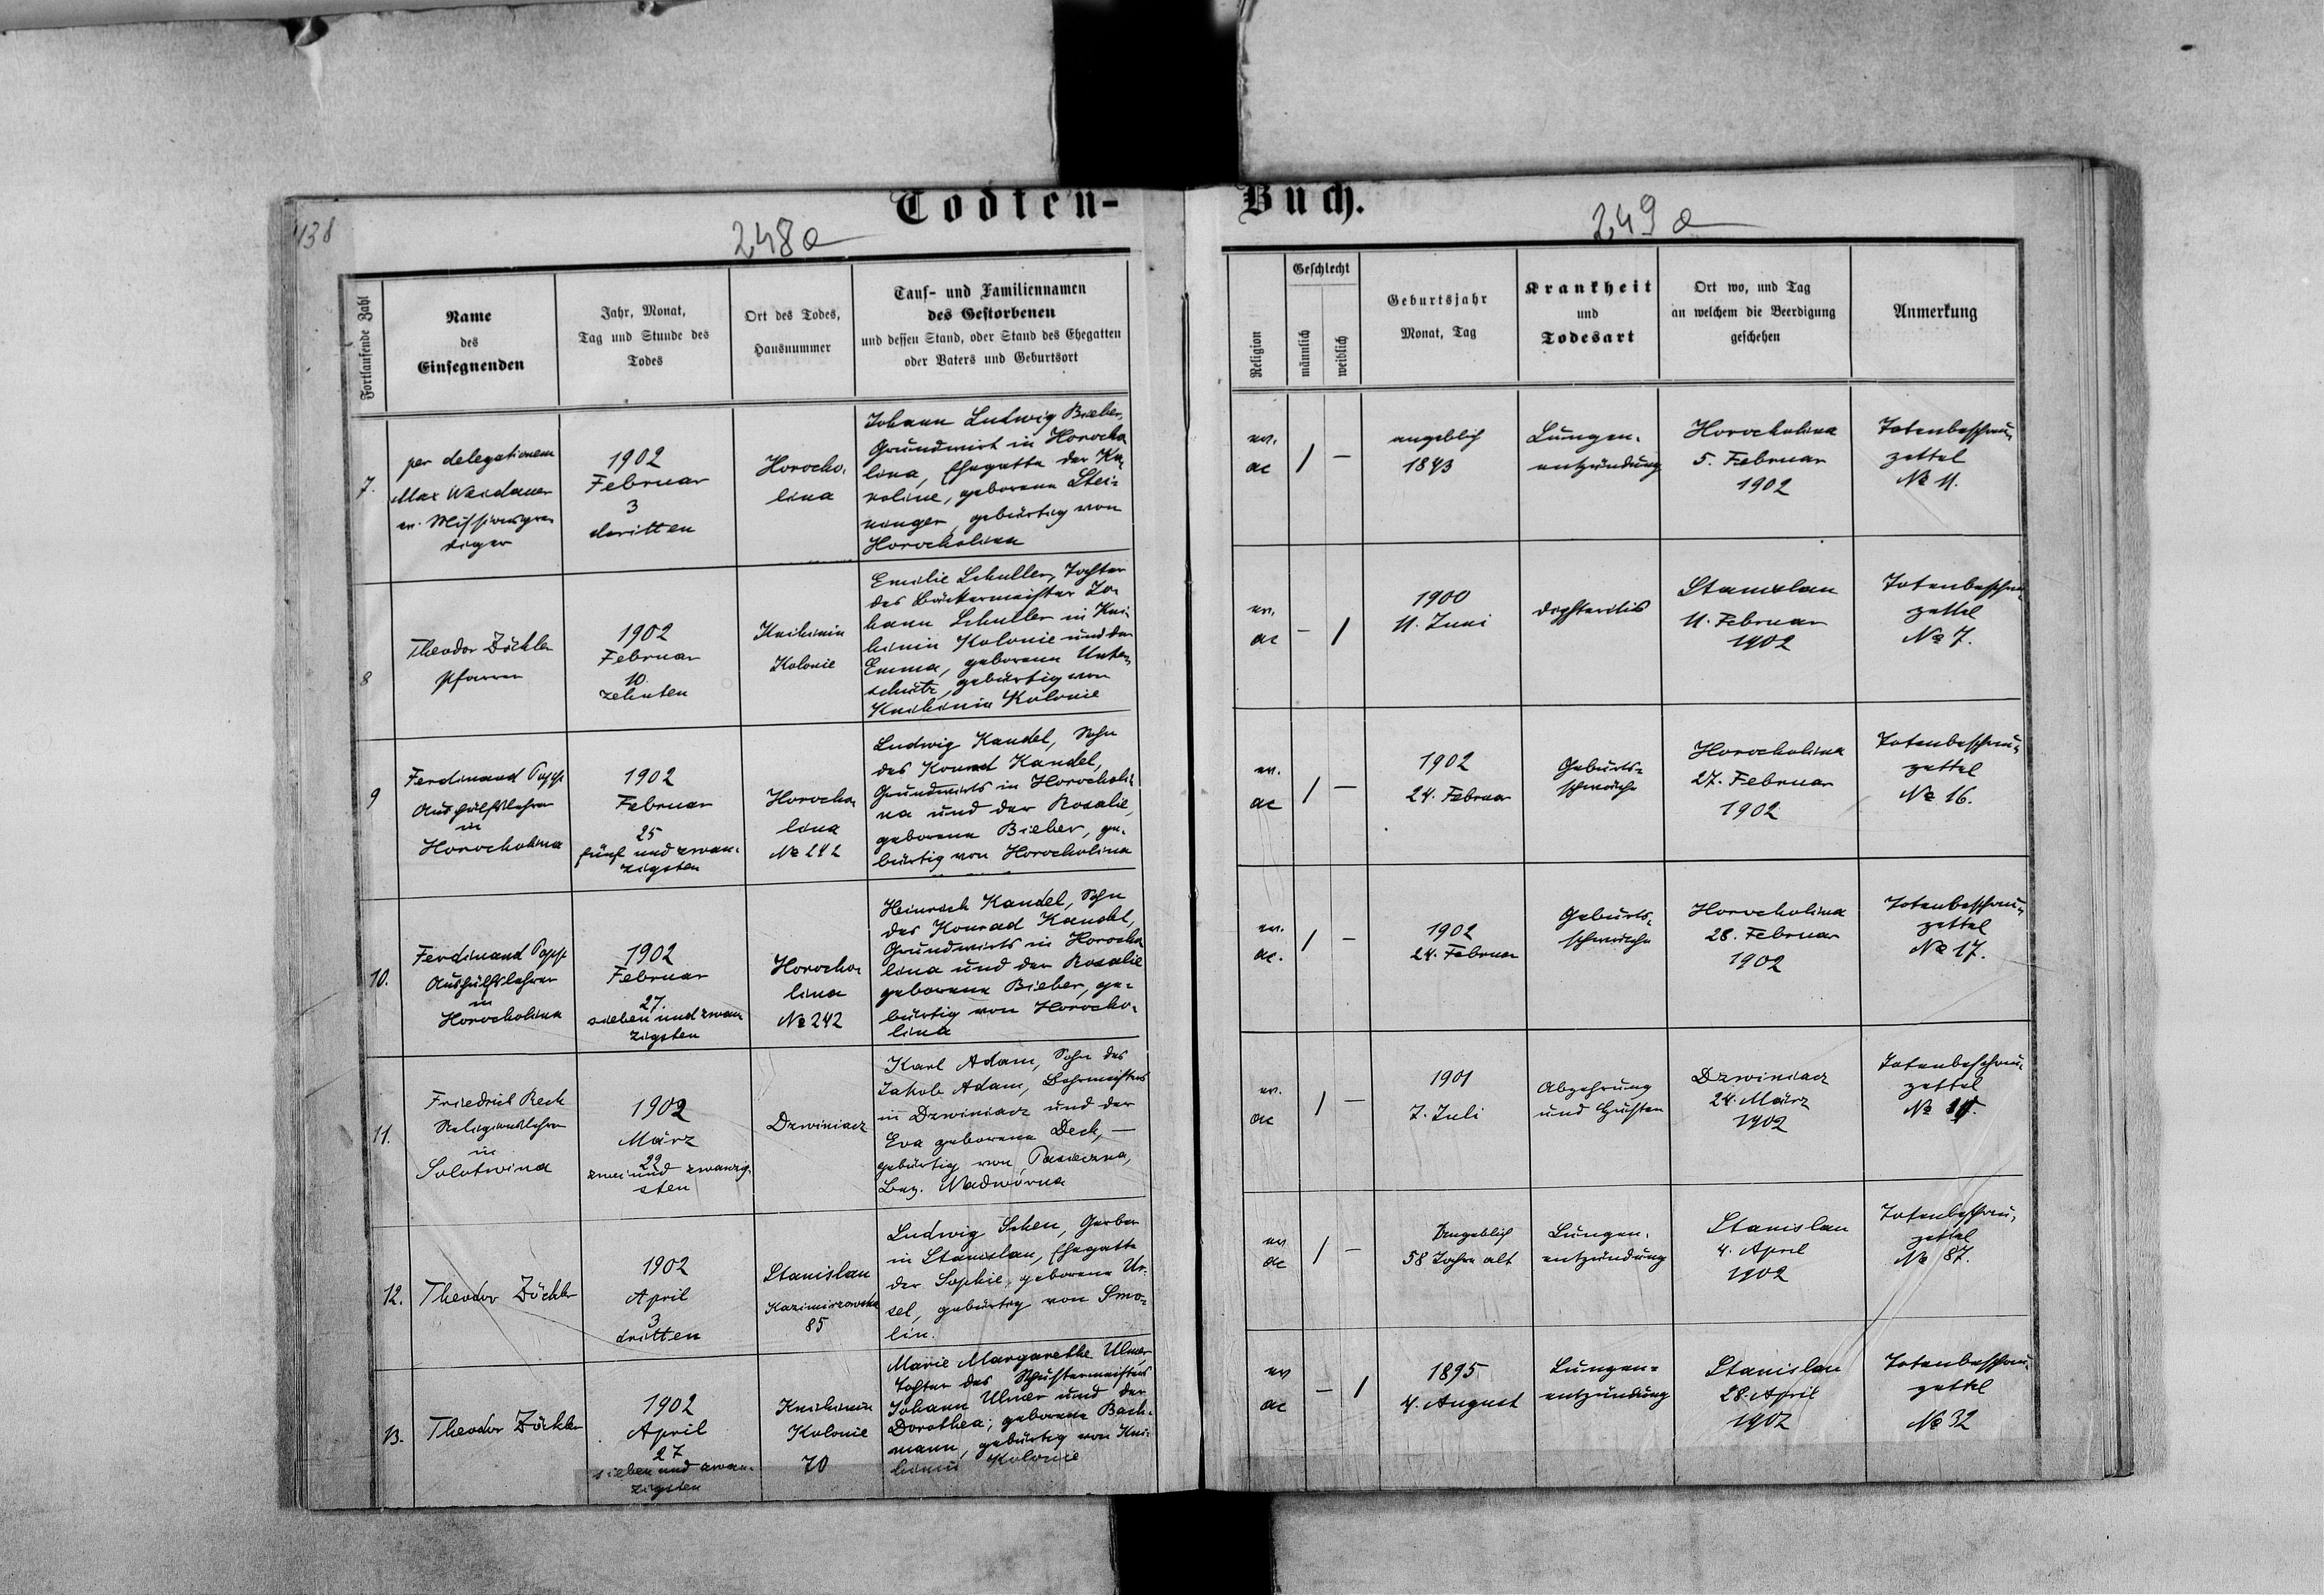 438
Todten-
Buch.
248a
249a
Fortlaufende Zahl
Name
des
Einsegnenden
Jahr, Monat,
Tag und Stunde des
Todes
Ort des Todes,
Hausnummer
Tauf- und Familiennamen
des Gestorbenen
und dessen Stand, oder Stand des Ehegatten
oder Vaters und Geburtsort
Religion
Geschlecht
männlich
weiblich
Geburtsjahr
Monat, Tag
Krankheit
und
Todesart
Ort wo, und Tag
an welchem die Beerdigung
geschehen
Anmerkung
7.
per delegationem
Max Weidauer
ev. Missionspre-
diger
1902
Februar
3
dritten
Horocho-
lina
Johann Ludwig Bieber,
Grundwirt in Horocho
lina, Ehegatte der Ka-
roline, geborene Stei-
ninger, gebürtig von
Horocholina
ev.
ac
/
–
angeblich
1843
Lungen-
entzündung
Horocholina
5. Februar
1902
Totenbeschau-
zettel
№ 11.
8
Theodor Zöckler
Pfarrer
1902
Februar
10.
zehnten
Knihinin
Kolonie
Emilie Schuller, Tochter
des Bäckermeister Jo-
hann Schuller in Kni-
hinin Kolonie und der
Emma, geborene Unter-
schütz, gebürtig von
Knihinin Kolonie
ev.
ac
–
/
1900
11. Juni
diphteritis
Stanislau
11. Februar
1902
Totenbeschau-
zettel
№ 7.
9
Ferdinand Popp
Aushülfslehrer
in
Horocholina
1902
Februar
25
fünf und zwan-
zigsten
Horocho-
lina
№ 242
Ludwig Kandel, Sohn
des Konrad Kandel,
Grundwirts in Horocholi-
na und der Rosalie,
geborene Bieber, ge-
bürtig von Horocholina
ev.
ac
/
–
1902
24. Februar
Geburts-
schwäche
Horocholina
27. Februar
1902
Totenbeschau-
zettel
№ 16.
10.
Ferdinand Popp
Aushülfslehrer
in
Horocholina
1902
Februar
27.
sieben und zwan
zigsten
Horocho-
lina
№ 242
Heinrich Kandel, Sohn
des Konrad Kandel,
Grundwirts in Horocho
lina und der Rosalie
geborene Bieber, ge-
bürtig von Horocho-
lina
ev.
ac.
/
–
1902
24. Februar
Geburts-
schwäche
Horocholina
28. Februar
1902
Totenbeschau-
zettel
№ 17.
11.
Friedrich Rech
Religionslehrer
in
Solotwina
1902
März
22
zwei und zwanzig-
sten
Dzwiniacz
Karl Adam, Sohn des
Jakob Adam, Bohrmeisters
in Dzwiniacz und der
Eva geborene Deck, –
gebürtig von Pasieczna,
Bez. Nadworna
ev.
ac
/
–
1901
7. Juli
Abzehrung
und Husten
Dzwiniacz
24. März
1902
Totenbeschau-
zettel
№
12.
Theodor Zöckler
1902
April
3
dritten
Stanislau
Kazimirzowska
85
Ludwig Schen, Gerber
in Stanislau, Ehegatte
der Sophie, geborene Ur-
sel, gebürtig von Smo-
lin.
ev
ac
/
–
Angeblich
58 Jahre alt
Lungen-
entzündung
Stanislau
4. April
1902
Totenbeschau-
zettel
№ 87.
13.
Theodor Zöckler
1902
April
27
sieben und zwan-
zigsten
Knihinin
Kolonie
70
Marie Margarethe Ulmer
Tochter des Schustermeisters
Johann Ulmer und der
Dorothea, geborene Bach-
mann, gebürtig von Kni-
hinin Kolonie
ev
ac
–
/
1895
4. August
Lungen-
entzündung
Stanislau
28. April
1902
Totenbeschau-
zettel
№ 32